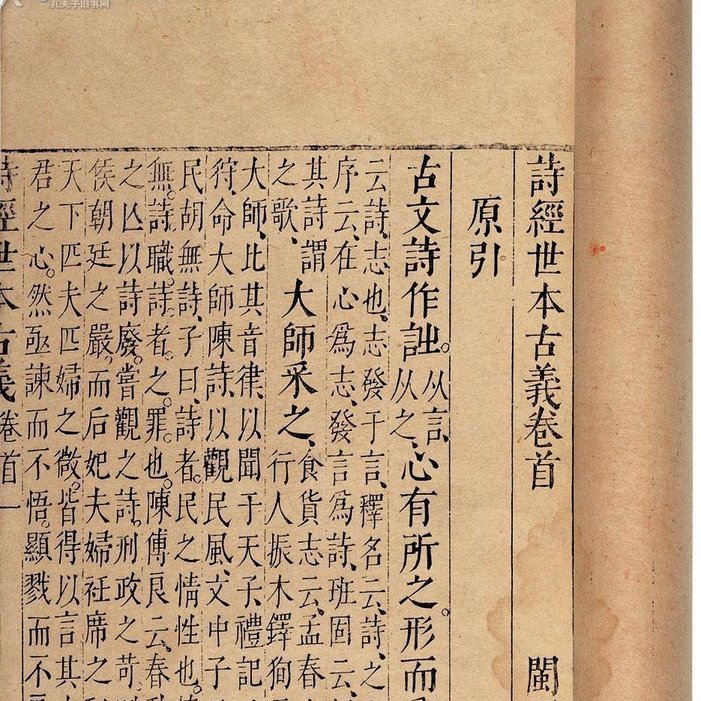 孔夫子旧书网
詩經世本古義卷首 閩
原引
古文詩作𧥳。从言、从之、心有所之。形而
云詩、志也、志發于言、釋名云、詩、之
序云、在心爲志、發言爲詩、班固云、
其詩謂
之歌、大師采之、食貨志云、孟春
行人振木鐸狥
大師、比其音律、以聞于天子、禮記
狩、命大師陳詩、以觀民風、文中子
民胡無詩、子曰、詩者、民之情性也、
無詩、職詩者之罪也、陳傅良云、春
之亾以詩廢。嘗觀之詩、刑政之苛
侯朝廷之嚴、而后妃夫婦衽席之
天下匹夫匹婦之微、皆得以言其
君之心。然亟諫而不悟。顯戮而不
詩經世本古義 卷首 一